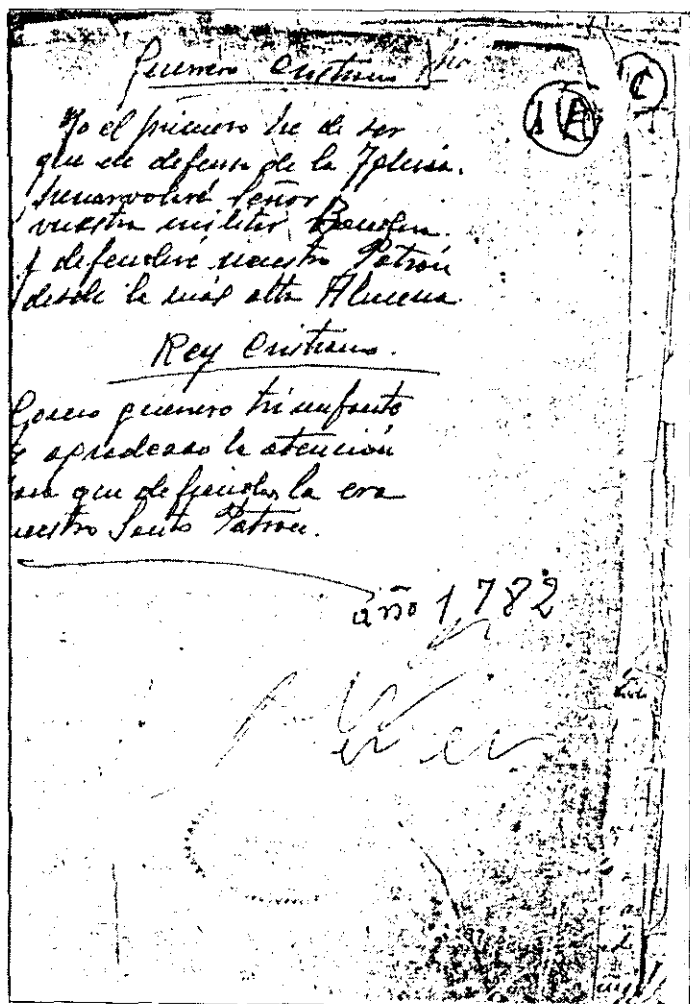 Guerrero Cristiano
1 A
C
Yo el primero he de ser
que en defensa de la Iglesia.
Señor
vuestra militar Bandera.
y defenderé nuestro Patrón
desde la más alta Almena
Rey Cristiano.
guerrero triunfante
agradezco la atención
que defiendas la era
Santo Patron.
año 1782